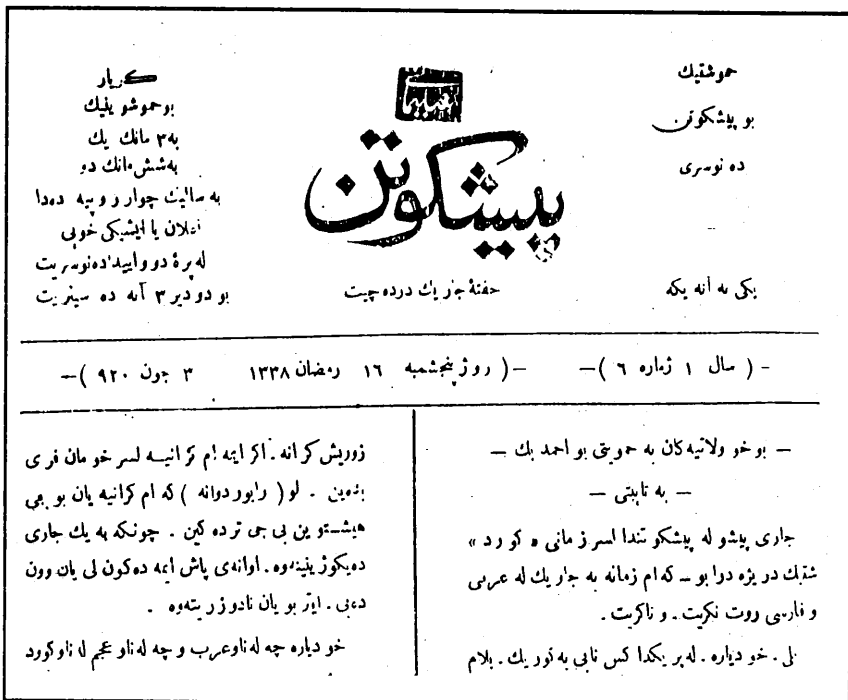 حموشتیك
بو پیشكوتن
ده نوسری
یكی به آنه یكه
سلیمانیه
پیشكوتن
حفتهٔ جاریك درده چیت
كریار
بو حمو شوینیك
به ٣ مانك یك
به شش مانك دو
به سالیك چوار روپیه ده دا
اعلان یا ایشیكی خوبی
له پرهٔ دووایید ده نوسریت
بو دو دیر ٣ آنه ده سینریت
— ( سال ١ ژماره ٦ )— —( روژ پنجشمبه ١٦ رمضان ١٣٣٨ ٣ جون ٩٢٠ )—
— بو خو ولاتیه كان به حمویتی بو احمد بك —
— به تایبتی —
جاری پیشو له پیشكوتندا لسر زمانی ه كورد »
شتیك دریژه درا بو ــ كه ام زمانه به جاریك له عربی
و فارسی روت نكریت . و ناكریت .
بلی . خو دیاره . له پریكدا كس نابی به توریك . بلام
زوریش كرانه . اكر ایمه ام كرانیه لسر خومان فری
بدەین . لو ( رابوردوانه ) كه ام كرانیه یان بو جی
هیشتوین بی جی تر ده كین . چونكه به یك جاری
ده یكوژینینه وه . اوانه ی پاش ایمه ده كون لی یان وون
ده بی . ایتر بویان نادوزریته وه .
خو دیاره چه له ناو عرب و چه له ناو عجم له ناو كورد